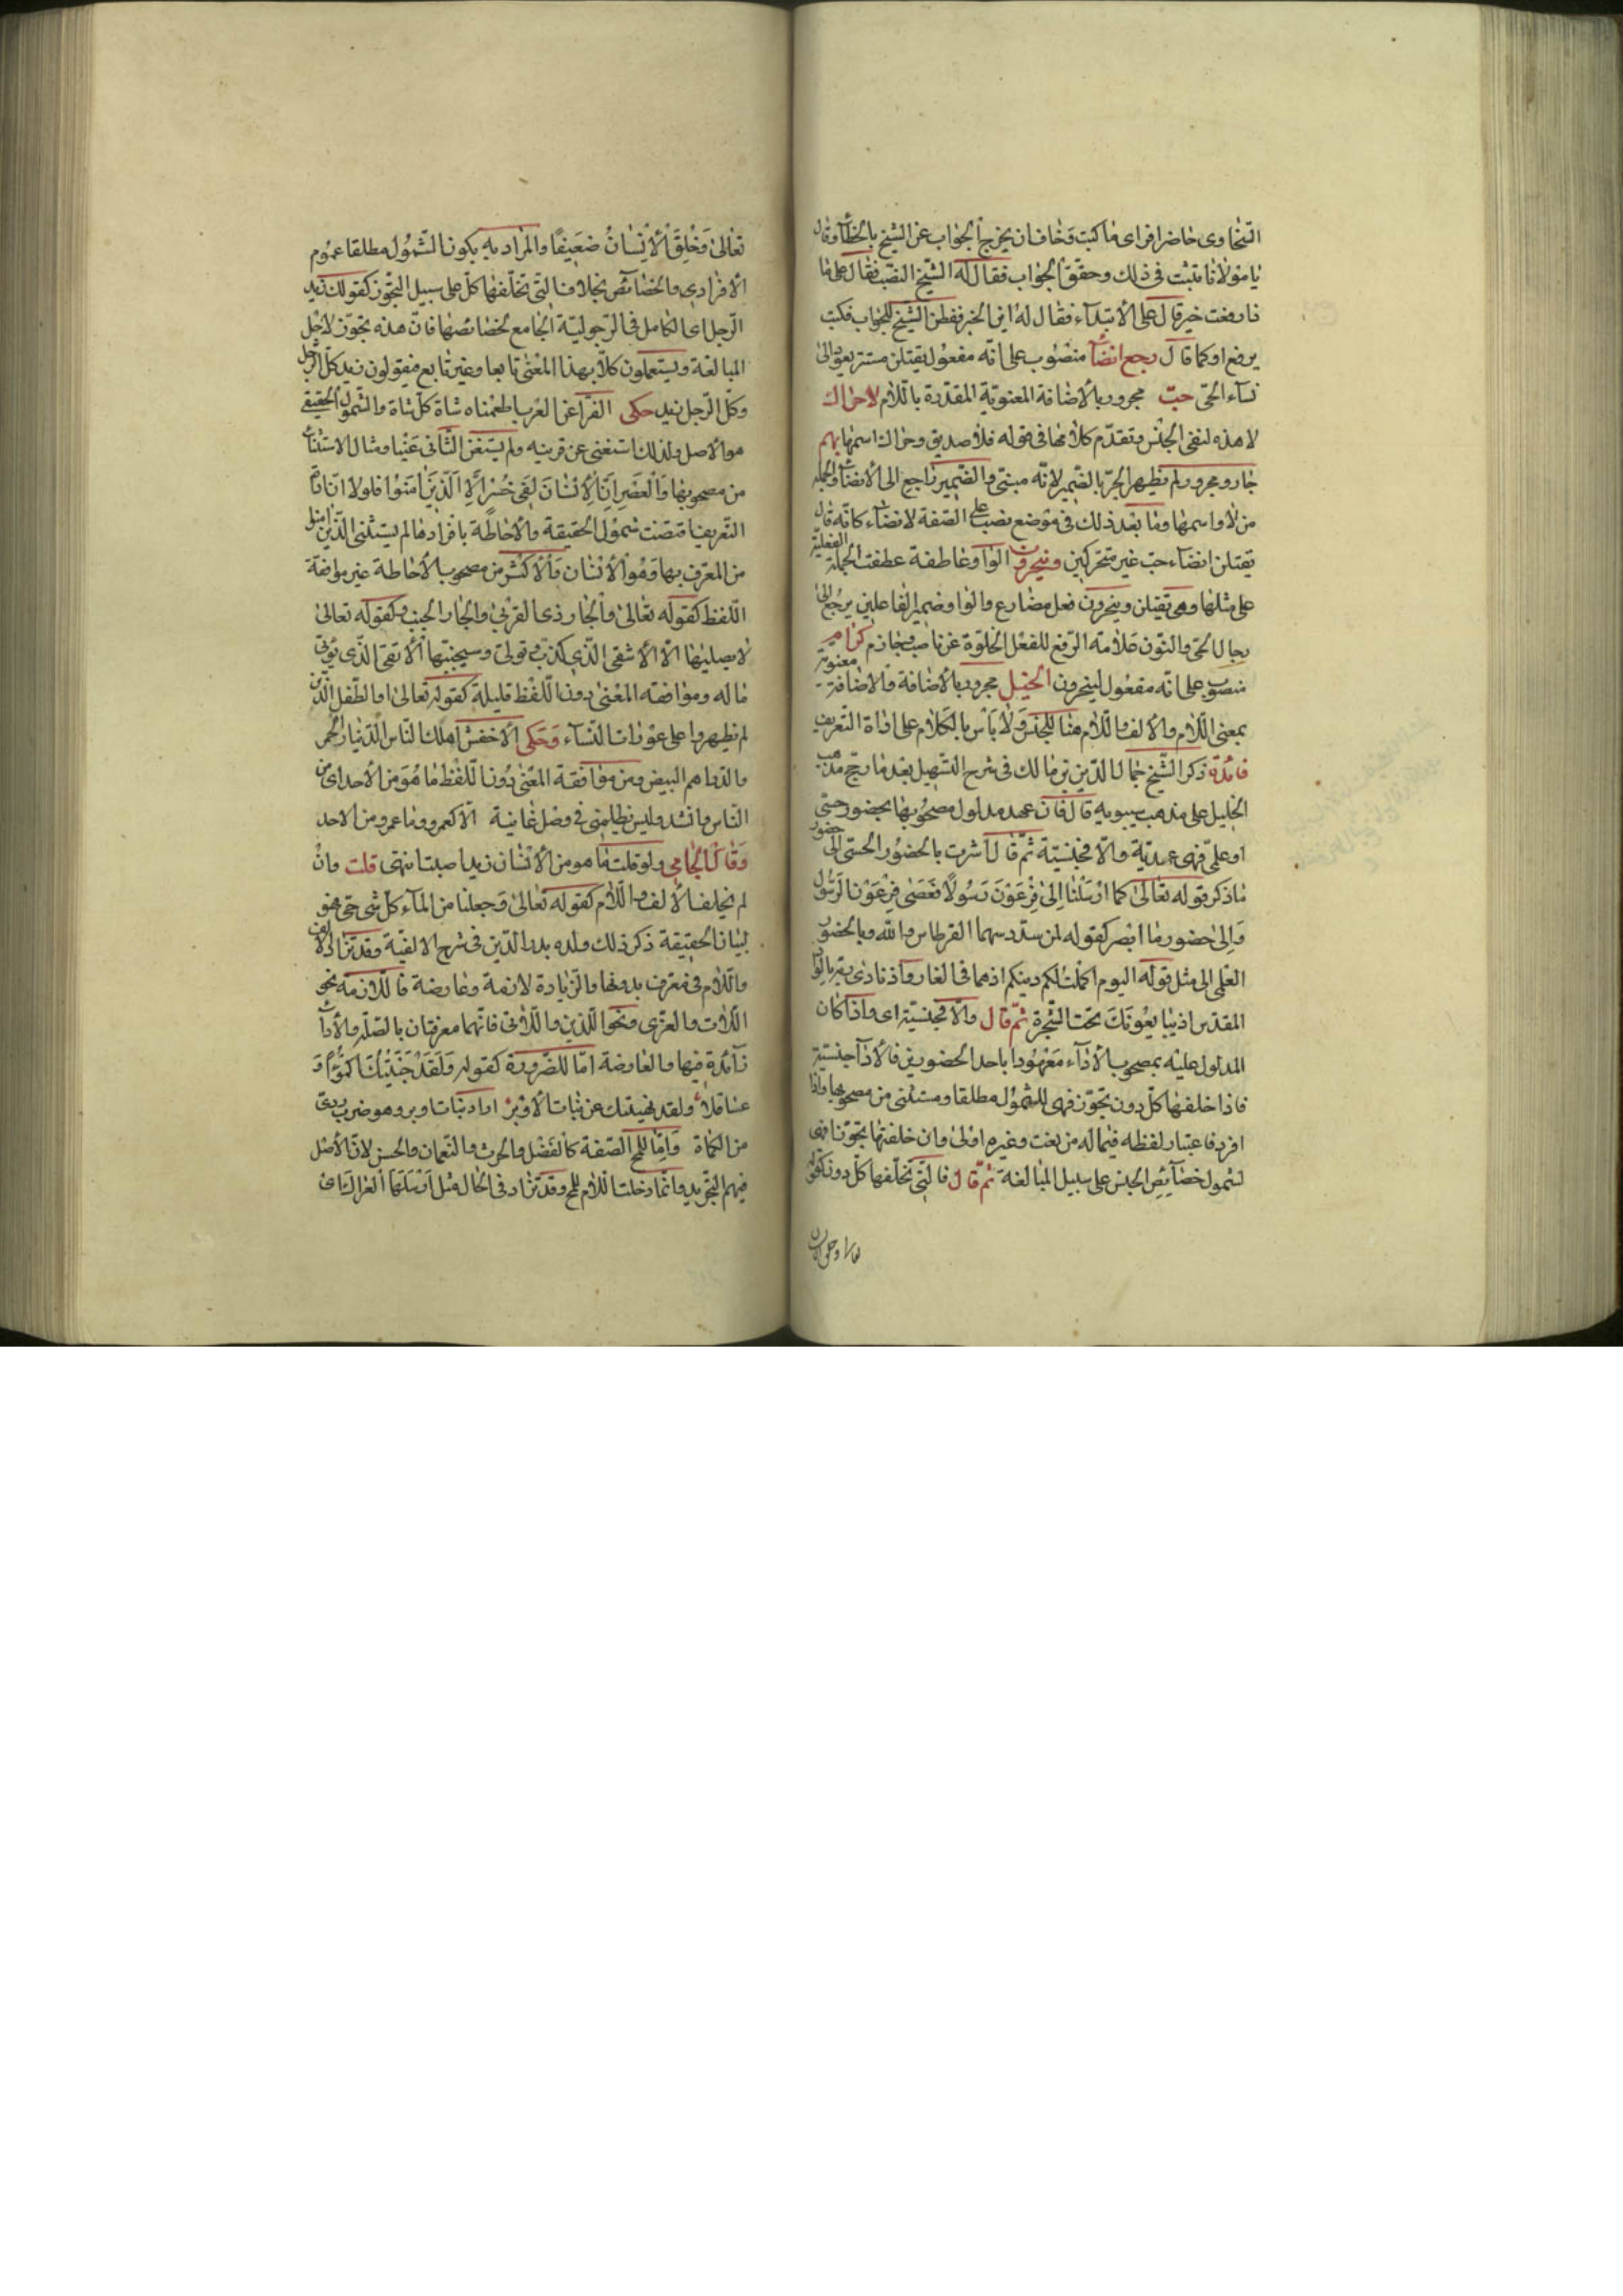 السخاوى حاضرا فراى ما كتب فخاف ان يخرج الجواب عن الشيخ بالخطأ وقال
يا مولانا متثبت فى ذلك وحقق الجواب فقال له الشيخ النصب فقال على ما
ذا رفعت خير قال على الابتداء فقال له اين الخبر ففطن الشيخ للجواب فكتب
يرفع او كما قال رجع انضآ منصوب على انه مفعول يقتلن مستتر يعود الى
نسآء الحى حبّ مجرور بالاضافة المعنوية المقدرة باللام لا حراك
لا هذه لنفى الجنس وتقدم كلامها فى قوله فلا صديق وحراك اسمها بهم
جار ومجرور ولم يظهر الجر بالضمير لانه مبنى والضمير راجع الى الانضآء والجملة
من لا واسمها وما بعد ذلك فى موضع نصب على الصفة لانضآء كانه قال
يقتلن انضآء حب غير متحركين وينحرون الواو عاطفة عطفت الجملة الفعلية
على مثلها وهى يقتلن وينحرون فعل مضارع والواو ضمير الفاعلين يرجع الى
رجال الحى والنون علامة الرفع للفعل لخلوة عن ناصب وجازم كرام
منصوب على انه مفعول لينحرون الخيل مجرور بالاضافة والاضافة معنوية
بمعنى اللام والالف واللام هنا للجنس ولا بأس بالكلام على اداة التعريف
فائدة ذكر الشيخ جمال الدين بن مالك فى شرح التسهيل بعد ما رجح مذهب
الخليل على مذهب سيبويه قال فان عهد مدلول مصحوبها بحضور حسى
او علمى فهى عهدية والا فجنسية ثم قال اشرت بالحضور الحسى الى حضور
ما ذكر قوله تعالى كما ارسلنا الى فرعون رسولا فعصى فرعون الرسول
والى حضور ما ابصر كقوله لمن سدد سهما القرطاس والله وبالحضور
العلمى الى مثل قوله اليوم اكملت لكم دينكم اذ هما فى الغار واذ ناداه ربه بالواد
المقدس اذ يبايعونك تحت الشجرة ثم قال والا فجنسية اى واذا كان
المدلول عليه بمصحوب الاداء معهودا باحد الحضورين فالاداة جنسية
فاذا خلفها كل دون تجوز فهى للشمول مطلقا ومستثنى من مصحوبها واذا
افرد فاعتبار لفظه فيما له من نعت وغيره اولى وان خلفتها بتجوز فهى
لشمول خصآئص الجنس على سبيل المبالغة ثم قال فالتى تخلفها كل دون كقوله
تعالى وخلق الانسان
تعالى وخلق الانسان ضعيفا والمراد به بكون الشمول مطلقا عموم
الافرادى والخصائص بخلاف التى تخلفها كل على سبيل التجوز كقولك زيد
الرجل اى الكامل فى الرجولية الجامع لخصائصها فان هذه تجوز لاجل
المبالغة ويستعملون كلا بهذا المعنى تابعا وغير تابع فيقولون زيد كل الرجل
وكل الرجل زيد حكى الفرآ عن العرب اطعمناه شاة كل شاة والشمول الحقيقى
هو الاصل ولذلك استغنى عن قرينه ولم يستغن الثانى عنها ومثال الاستثنآء
من مصحوبها والعصر ان الانسان لفى خسر الا الذين امنوا فلولا ان اداة
التعريف اقتضت شمول الحقيقة والاحاطة بافرادها لم يستثنى الذين امنوا
من المعرف بها وهو الانسان والاكثر من مصحوب الاحاطة غير موافقة
اللفظ كقوله تعالى والجار ذى القربى والجار الجنب وكقوله تعالى
لا يصليها الا الاشقى الذى كذب وتولى وسيجنبها الاتقى الذى يؤتى
ماله وموافقة المعنى دون اللفظ قليلة كقوله تعالى او الطفل الذين
لم يظهروا على عورات النسآء وحكى الاخفش اهلك الناس الدنيار الحمر
والدراهم البيض ومن موافقة المعنى دون اللفظ ما هو من الاحد اى من
الناس وانشد وليس يظلمنى فى وصل غانية الا كعمرو وما عمرو من الاحد
وقال الجامى ولو قلت ما هو من الانسان زيد اصبت انتهى قلت وان
لم يخلف الالف واللام كقوله تعالى وجعلنا من المآء كل شى حى فهو
لبيان الحقيقة ذكر ذلك ولده بدر الدين فى شرح الالفية وقد تزاد الالف
واللام فى معرف بدونها والزيادة لازمة وعارضة فاللازمة نحو
اللات والعزى ونحو الذين واللاتى فانهما معرفتان بالصلة والاداة
زآئدة فيها والعارضة اما للضرورة كقوله ولقد جنيتك اكمؤا و
عساقلا ولقد نهيتك عن بنات الاوبر اراد بنات اوبر وهو ضرب ردى
من الكماة واما للمح الصفة كالفضل والحرث والنعمان والحسن لان الاصل
فيهم التجريد وانما دخلت اللام للمح وقد تزاد فى الحال مثل ارسلها العراك اى